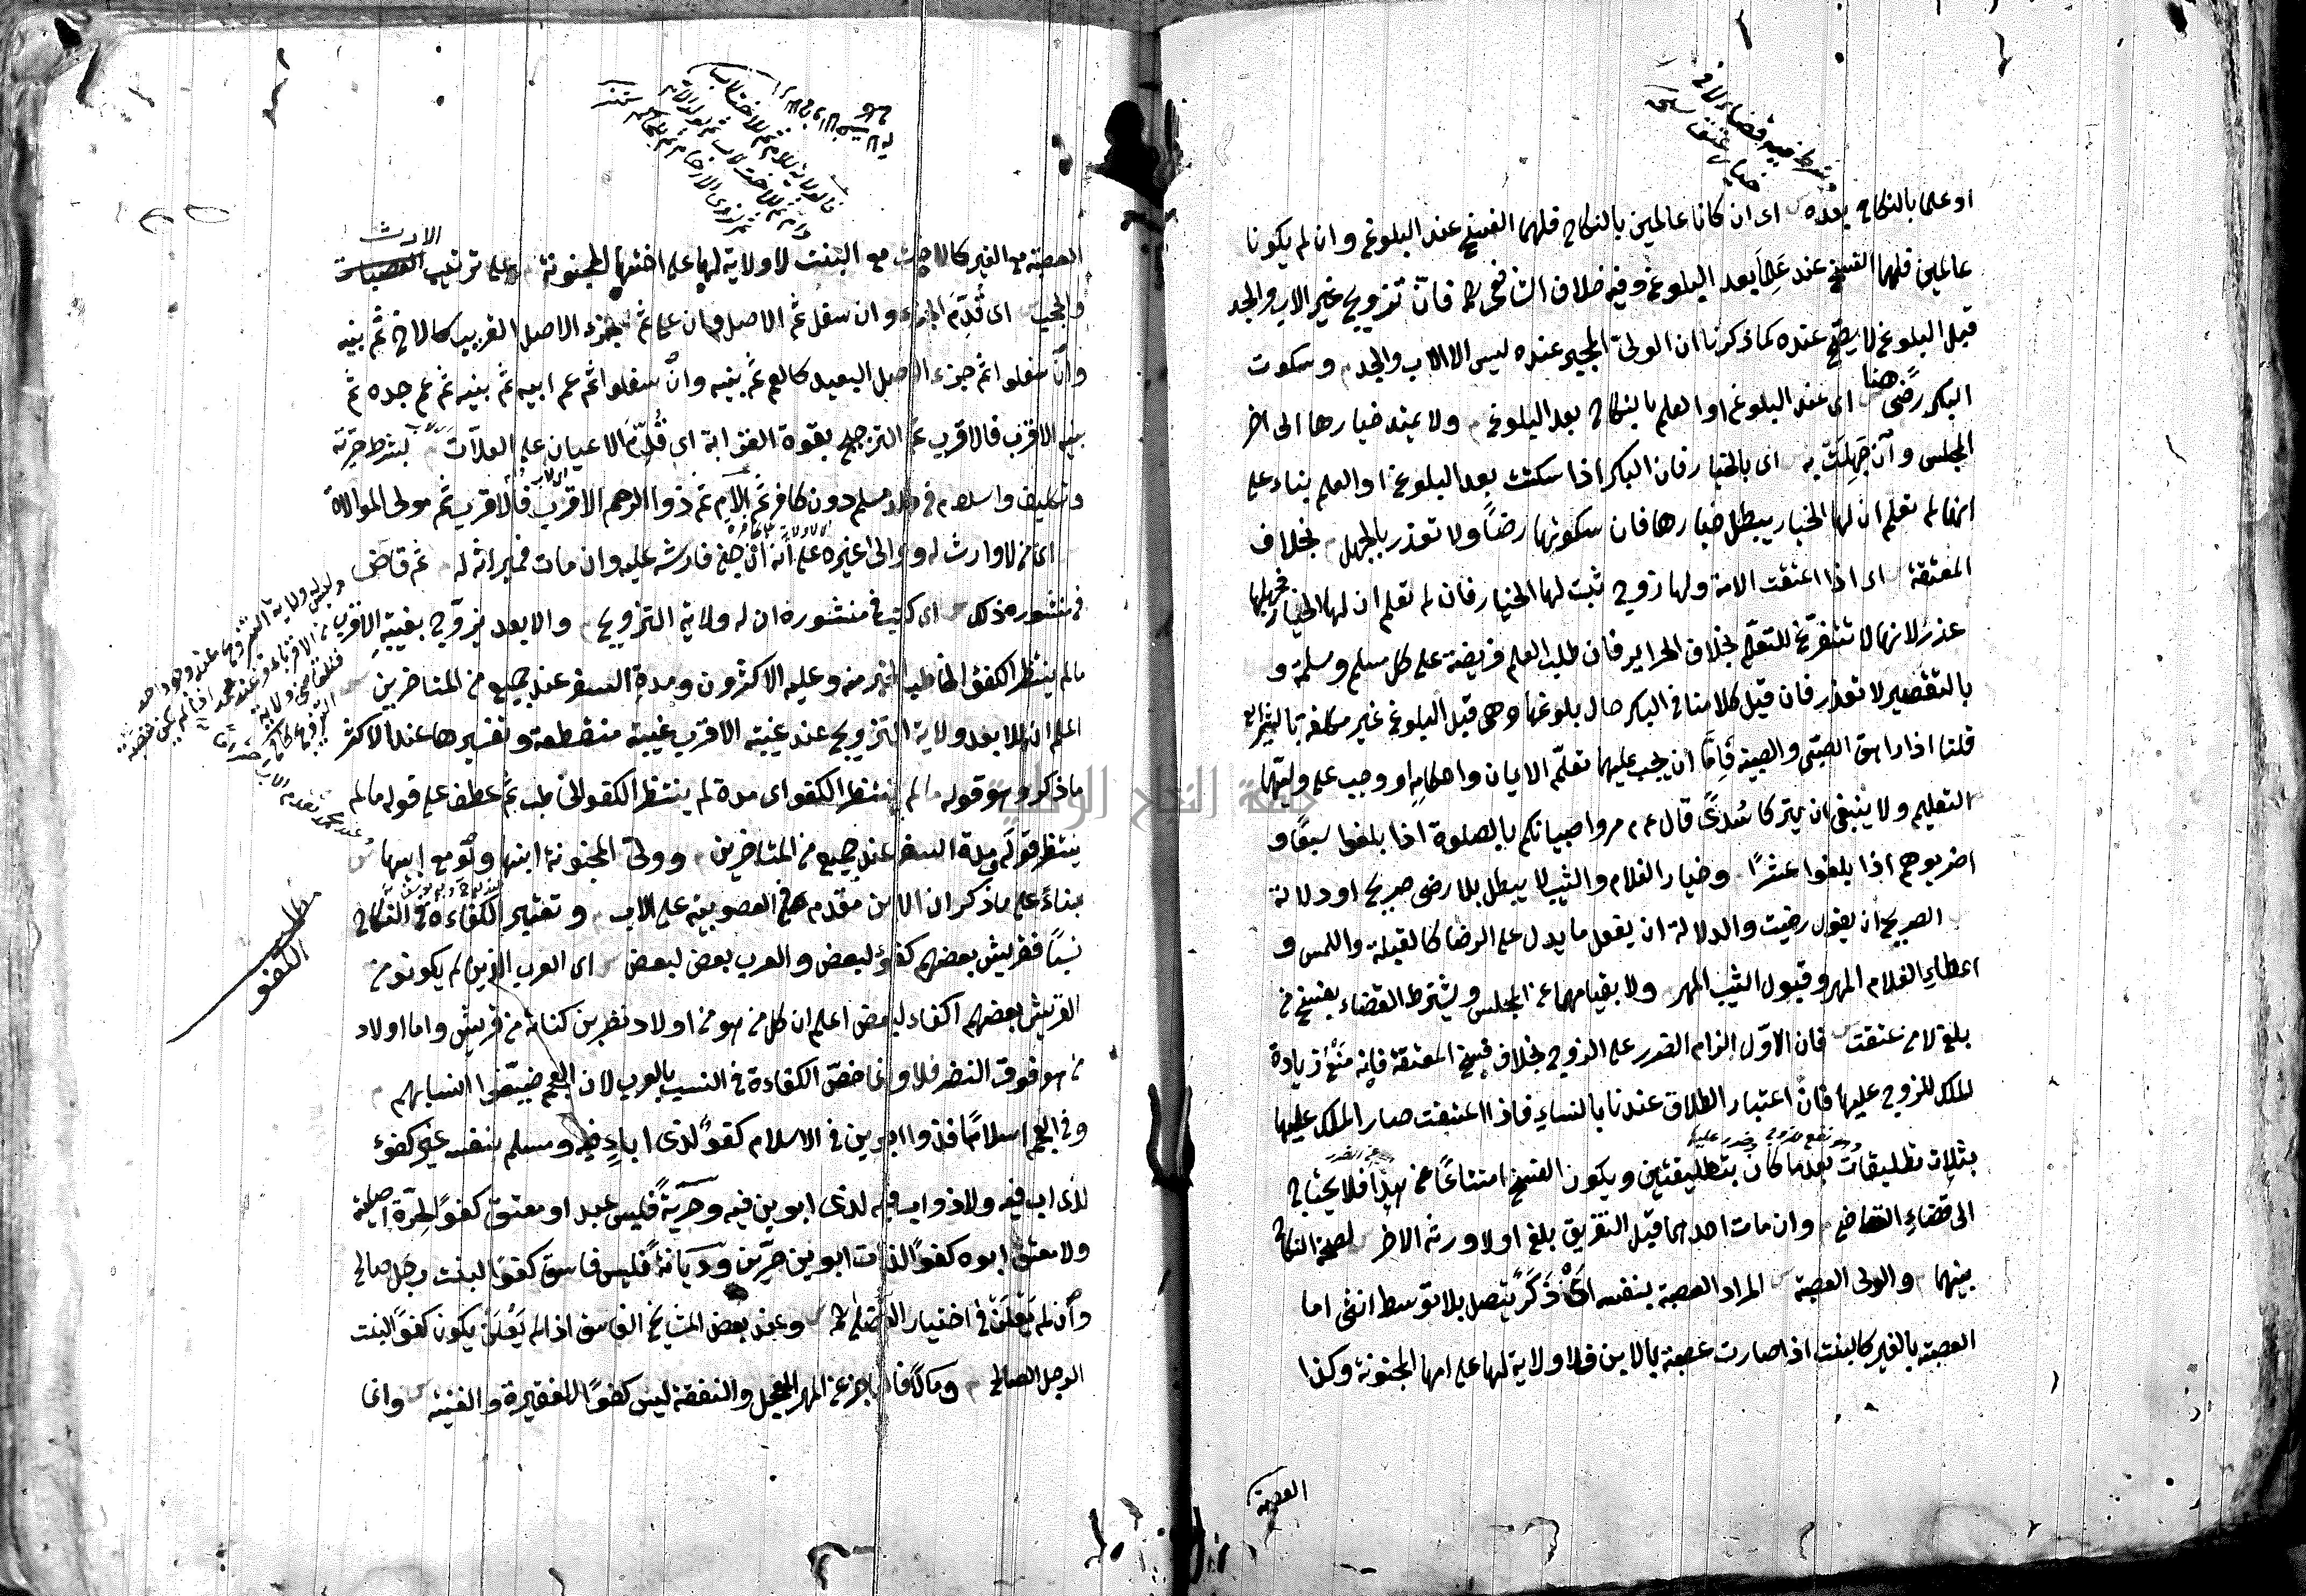 او علما بالنكاح بعده اى ان كانا عالمين بالنكاح فلهما الفسخ عند البلوغ وان لم يكونا
عالمين فلهما الفسخ عند علما بعد البلوغ وفيه خلاف الشافعى فان تزويج غير الاب والجد
قبل البلوغ لا يصح عنده كما ذكرنا ان الولى المجبر عنده ليس الا الاب والجد وسكوت
البكر رضى هنا اى عند البلوغ او العلم بالنكاح بعد البلوغ ولا يمتد خيارها الى اخر
المجلس وان جهلت به اى بالخيار فان البكر اذا سكتت بعد البلوغ او العلم بناء على
انها لم تعلم ان لها الخيار يبطل خيارها فان سكوتها رضا ولا تعذر بالجهل بخلاف
المعتقة اى اذا اعتقت الامة ولها زوج ثبت لها الخيار فان لم تعلم ان لها الخيار فجهلها
عذر لانها لا تتفرغ للتعلم بخلاف الحراير فان طلب العلم فريضة على كل مسلم ومسلمة و
بالتقصير لا تعذر فان قيل كلامنا فى البكر حال بلوغها وهى قبل البلوغ غير مكلفة بالشرايع
قلنا اذا راهق الصبى والصبية فاما ان يجب عليهما تعلم الايمان واحكامه او وجب على وليهما
التعليم ولا ينبغى ان يتركا سدى قال عم مروا صبيانكم بالصلوة اذا بلغوا سبعا و
اضربوهم اذا بلغوا عشرا وخيار الغلام والثيب لا يبطل بلا رضى صريح او دلالة
الصريح ان يقول رضيت والدلالة ان يفعل ما يدل على الرضا كالقبلة واللمس و
اعطاء الغلام المهر وقبول الثيب المهر ولا بقيامهما عن المجلس ويشترط القضاء بفسخ من
بلغ لا من عتقت فان الاول الزام الضرر على الزوج بخلاف فسخ المعتقة فانه منع زيادة
الملك للزوج عليها فان اعتبار الطلاق عندنا بالنساء فاذا اعتقت صار الملك عليها
بثلاث تطليقات بعد ما كان بتطليقتين ويكون الفسخ امتناعا عن هذا فلا يحتاج
الى قضاء القاضى وان مات احدهما قبل التفريق بلغ اولا ورثه الاخر لصحة النكاح
بينهما والولى العصبة المراد العصبة بنفسه اى ذكر يتصل بلا توسط انثى اما
العصبة بالغير كالبنت اذا صارت عصبة بالابن فلا ولاية لها على امها المجنونة وكذا
العصبة
الارث
العصبة مع الغير كالاخت مع البنت لا ولاية لها على اختها المجنونة على ترتيب العصبات
والحجب اى قدم الجزء وان سفل ثم الاصل وان علا ثم جزء الاصل القريب كالاخ ثم بنيه
وان سفلوا ثم جزء الاصل البعيد كالعم ثم بنيه وان سفلوا ثم عم ابيه ثم بنيه ثم عم جده ثم
بنيه الاقرب فالاقرب ثم الترجيح بقوة القرابة اى قدم الاعيان على العلات بشرط حرية
وتكليف واسلام فى ولد مسلم دون كافر ثم الام ثم ذو الرحم الاقرب فالاقرب ثم مولى الموالاة
اى من لا وارث له والى غيره على انه ان جنى فارشه عليه وان مات فميراثه له ثم قاض
فى منشوره ذلك اى كتب فى منشوره ان له ولاية التزويج والابعد يزوج بغيبة الاقرب
مالم ينتظر الكفؤ الخاطب الخبر منه وعليه الاكثرون ومدة السفر عند جمع من المتاخرين
اعلم ان للابعد ولاية التزويج عند غيبة الاقرب غيبة منقطعة وتفسيرها عند الاكثر
ماذكر وهو قوله مالم ينتظر الكفو اى مدة لم ينتظر الكفو الخاطب ثم عطف على قوله مالم
ينتظر قوله ومدة السفر عند جمع من المتاخرين وولى المجنونة ابنها ولو مع ابيها
بناء على ما ذكر ان الابن مقدم فى العصوبة على الاب وتعتبر الكفاءة فى النكاح
نسبا فقريش بعضهم كفؤ لبعض والعرب بعض لبعض اى العرب الذين لم يكونو من
القريش بعضهم اكفاء لبعض اعلم ان كل من هو من اولاد نضر بن كنانة من قريش واما اولاد
من هو فوق النضر فلا وانما خص الكفاءة فى النسب بالعرب لان العجم ضيعوا انسابهم
وفى العجم اسلاما فذو ابوين فى الاسلام كفو لذى اباء فيه ومسلم بنفسه غير كفوء
لذى اب فيه ولا ذو اب فيه لذى ابوين فيه وحرية فليس عبد او معتق كفوا لحرة اصلية
ولا معتق ابوه كفوا لذات ابوين حرين وديانة فليس فاسق كفوا لبنت رجل صالح
وان لم يعلن فى اختيار الفضلى وعند بعض المشايخ الفاسق اذا لم يعلن يكون كفوا لبنت
الرجل الصالح ومالا فالعاجز عن المهر المعجل والنفقة ليس كفوا للفقيرة والغنية وانما
مطلب
الكفو